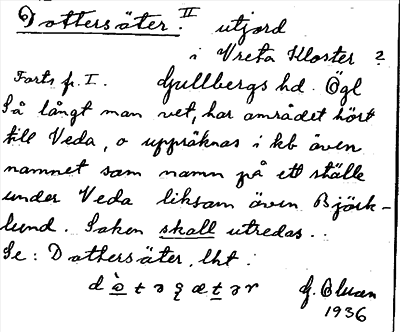 Dottersäter. II utjord
i Vreta Kloster ?
Forts fr. I. Gullbergs hd. Ögl
Så långt man vet, har området hört
till Veda, o uppräknas i kb även
namnet som namn på ett ställe
under Veda liksom även Björk-
lund. Saken skall utredas..
Se: Dottersäter, lht.
G. Bluan
1936